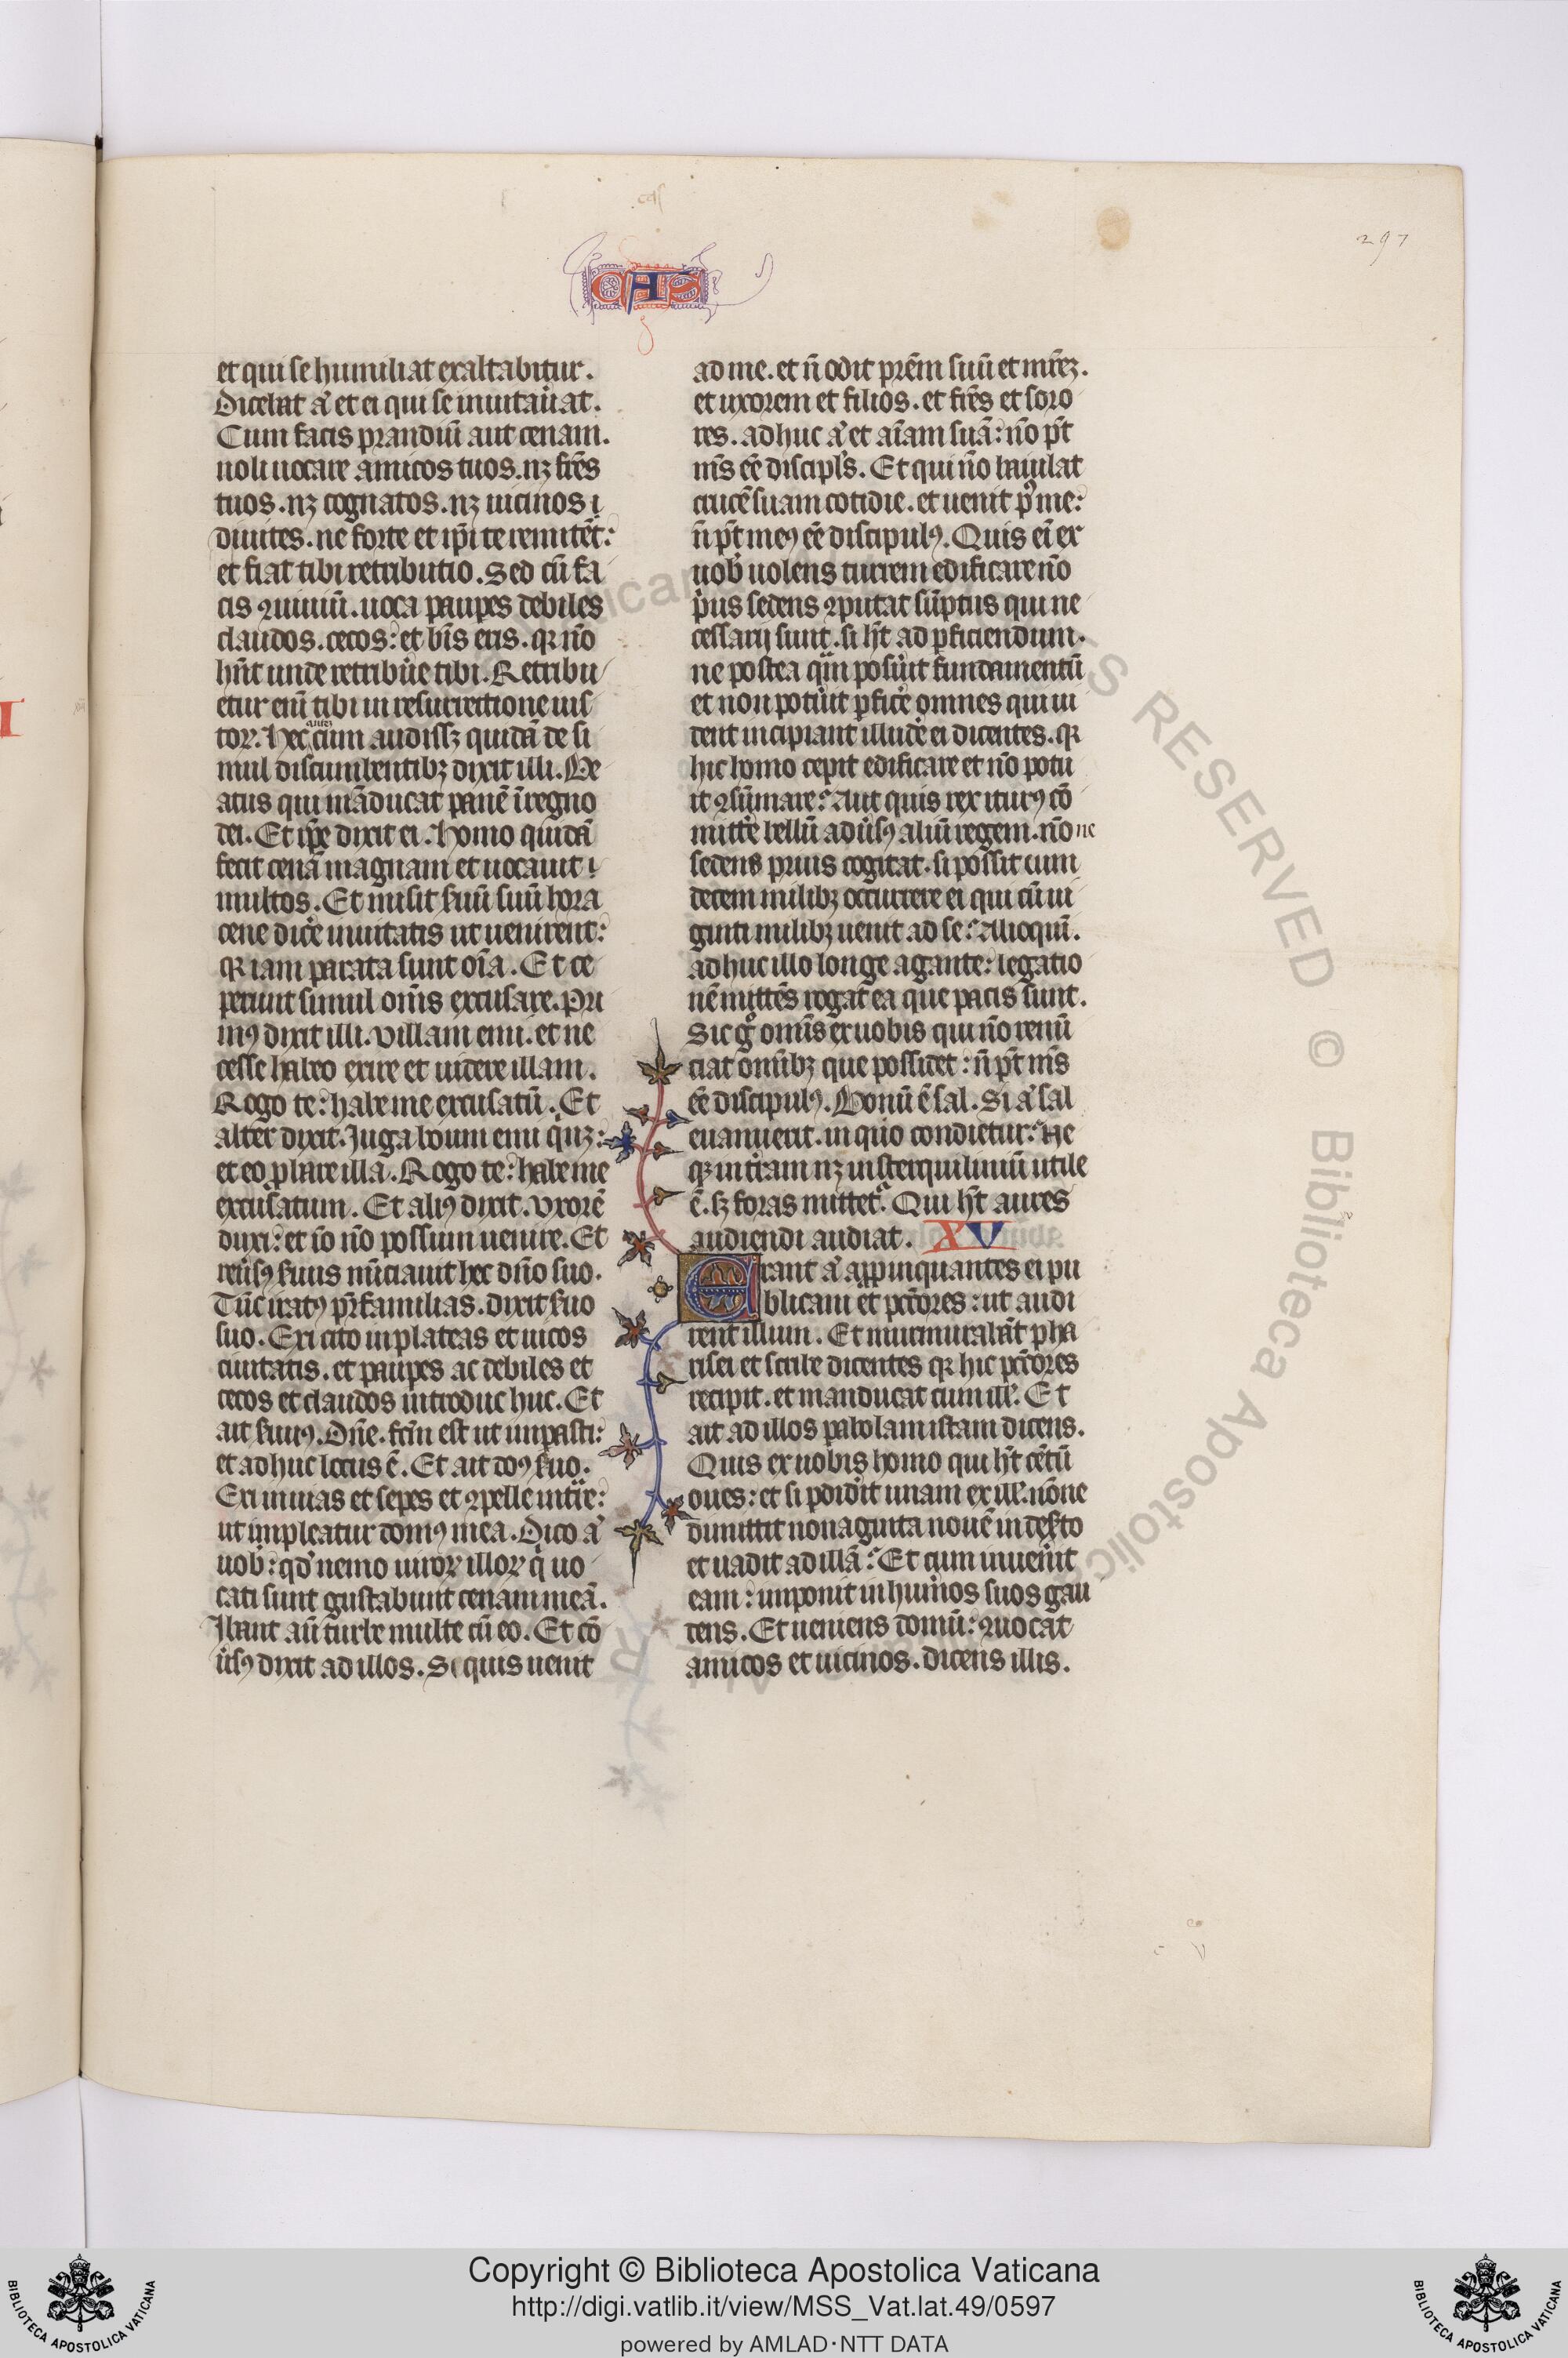 297
CAS
et qui se humiliat exaltabitur.
Dicebat aͥ et ei qui se inuitau̓at.
Cum facis prandiū aut cenam.
noli uocare amicos tuos. nꝫ fr̄es
tuos. nꝫ cognatos. nꝫ uicinos
diuites. ne forte et ip̄i te reinuitēt:
et fiat tibi retributio. Sed cū fa
cis ꝯuiuiū. uoca paupes debiles
claudos. cecos: et bt̄s eris. qꝛ nō
hn̄t unde retribue̓ tibi. Retribu
etur enī tibi in resurrectione ius
toꝝ. Hec autez cum audissꝫ quidā de si
mul discumbentibꝫ dixit illi. Be
atus qui māducat panē ī regno
dei. Et ip̄e dixit ei. Homo quidā
fecit cenā magnam et uocauit
multos. Et misit s̓uū suū hora
cene dice̓ inuitatis ut uenirent:
qꝛ iam parata sunt oīa. Et ce
perunt simul om̄s excusare. Pri
mꝰ dixit illi. Villam emi. et ne
cesse habeo exire et uidere illam.
Rogo te: habe me excusatū. Et
alter dixit. Iuga boum emi qͥnqꝫ:
et eo ꝓbare illa. Rogo te: habe me
excusatum. Et aliꝰ dixit. Vxorē
duxi: et iō nō possum uenire. Et
reu̓sꝰ s̓uus nūciauit hec dn̄o suo.
Tūc iratꝰ pr̄familias. dixit s̓uo
suo. Exi cito in plateas et uicos
ciuitatis. et paupes ac debiles et
cecos et claudos introduc huc. Et
ait s̓uus. Dn̄e. fcm̄ est ut impasti:
et adhuc locus ē. Et ait dn̄s s̓uo.
Exi in uias et sepes et ꝯpelle intͣre:
ut impleatur domꝰ mea. Dico aͥ
uob̓: qd̓ nemo uiroꝝ illoꝝ qͥ uo
cati sunt gustabunt cenam meā.
Ibant aū turbe multe cū eo. Et cō
u̓sꝰ dixit ad illos. Si quis uenit
ad me. et n̄ odit pr̄em suū et mr̄eꝫ.
et uxorem et filios. et fr̄es et soro
res. adhuc aͥ et aīam suā: nō pt̄
ms̄ eē discipl̓s. Et qui nō baiulat
crucē suam cotidie. et uenit pꝰ me:
n̄ pt̄ meꝰ eē discipulꝰ. Quis eī ex
uob̓ uolens turrem edificare nō
pͥus sedens ꝯputat sūptus qui ne
cessarij sunt. si hꝫt ad ꝑficiendum.
ne postea qͣm posuit̓ fundamentū
et non potuit̓ ꝑfice̓ omnes qui ui
dent incipiant illude̓ ei dicentes. qꝛ
hic homo cepit edificare et nō potu
it ꝯsūmare: Aut quis rex iturꝰ cō
mitte̓ bellū adu̓sꝰ aliū regem. nō ne
sedens prius cogitat. si possit cum
decem milibꝫ occurrere ei qui cū ui
ginti milibꝫ uenit ad se: Alioquī.
adhuc illo longe agente: legatio
nē mittēs rogat ea que pacis sunt.
Sic gͦ om̄is ex uobis qui nō renū
ciat om̄ibꝫ que possidet: n̄ pt̄ ms̄
eē discipulꝰ. Bonū ē sal. Si aͥ sal
euanuerit. in quo condietur: Ne
qꝫ in tr̄am nꝫ in sterquiliniū utile
ē. sꝫ foras mittetͬ. Qui hꝫt aures
audiendi audiat. XV
Erant aͥ appinquantes ei pu
blicani et pc̄cores: ut audi
rent illum. Et murmurabāt pha
risei et scribe dicentes qꝛ hic pc̄cores
recipit. et manducat cum ill̓. Et
ait ad illos pabolam istam dicens.
Quis ex uobis homo qui hꝫt cētū
oues: et si pdidit̓ unam ex ill̓. nōne
dimittit nonaginta nouē in des̓to
et uadit ad illā: Et cum inuen̓it
eam: imponit in hum̓os suos gau
dens. Et ueniens domū: ꝯuocat
amicos et uicinos. dicens illis.
Copyright © Biblioteca Apostolica Vaticana
http://digi.vatlib.it/view/MSS_Vat.lat.49/0597
powered by AMLAD·NTT DATA
BIBLIOTECA APOSTOLICA VATICANA
BIBLIOTECA APOSTOLICA VATICANA